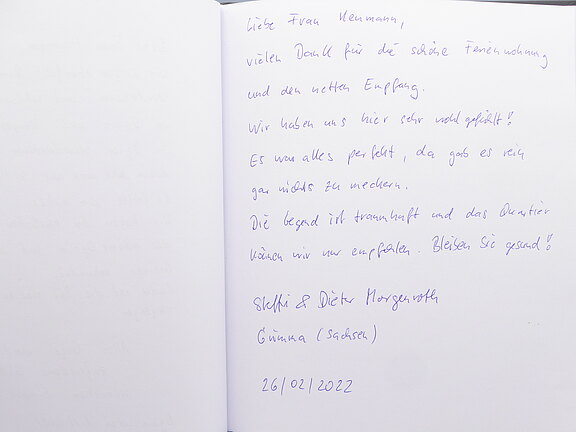 Liebe Frau Neumann,
vielen Dank für die schöne Ferienwohnung
und den netten Empfang.
Wir haben uns hier sehr wohl gefühlt!
Es war alles perfekt, da gab es rein
gar nichts zu meckern.
Die Gegend ist traumhaft und das Quartier
können wir nur empfehlen. Bleiben Sie gesund!
Steffi & Dieter Morgenroth
Grimma (Sachsen)
26/02/2022